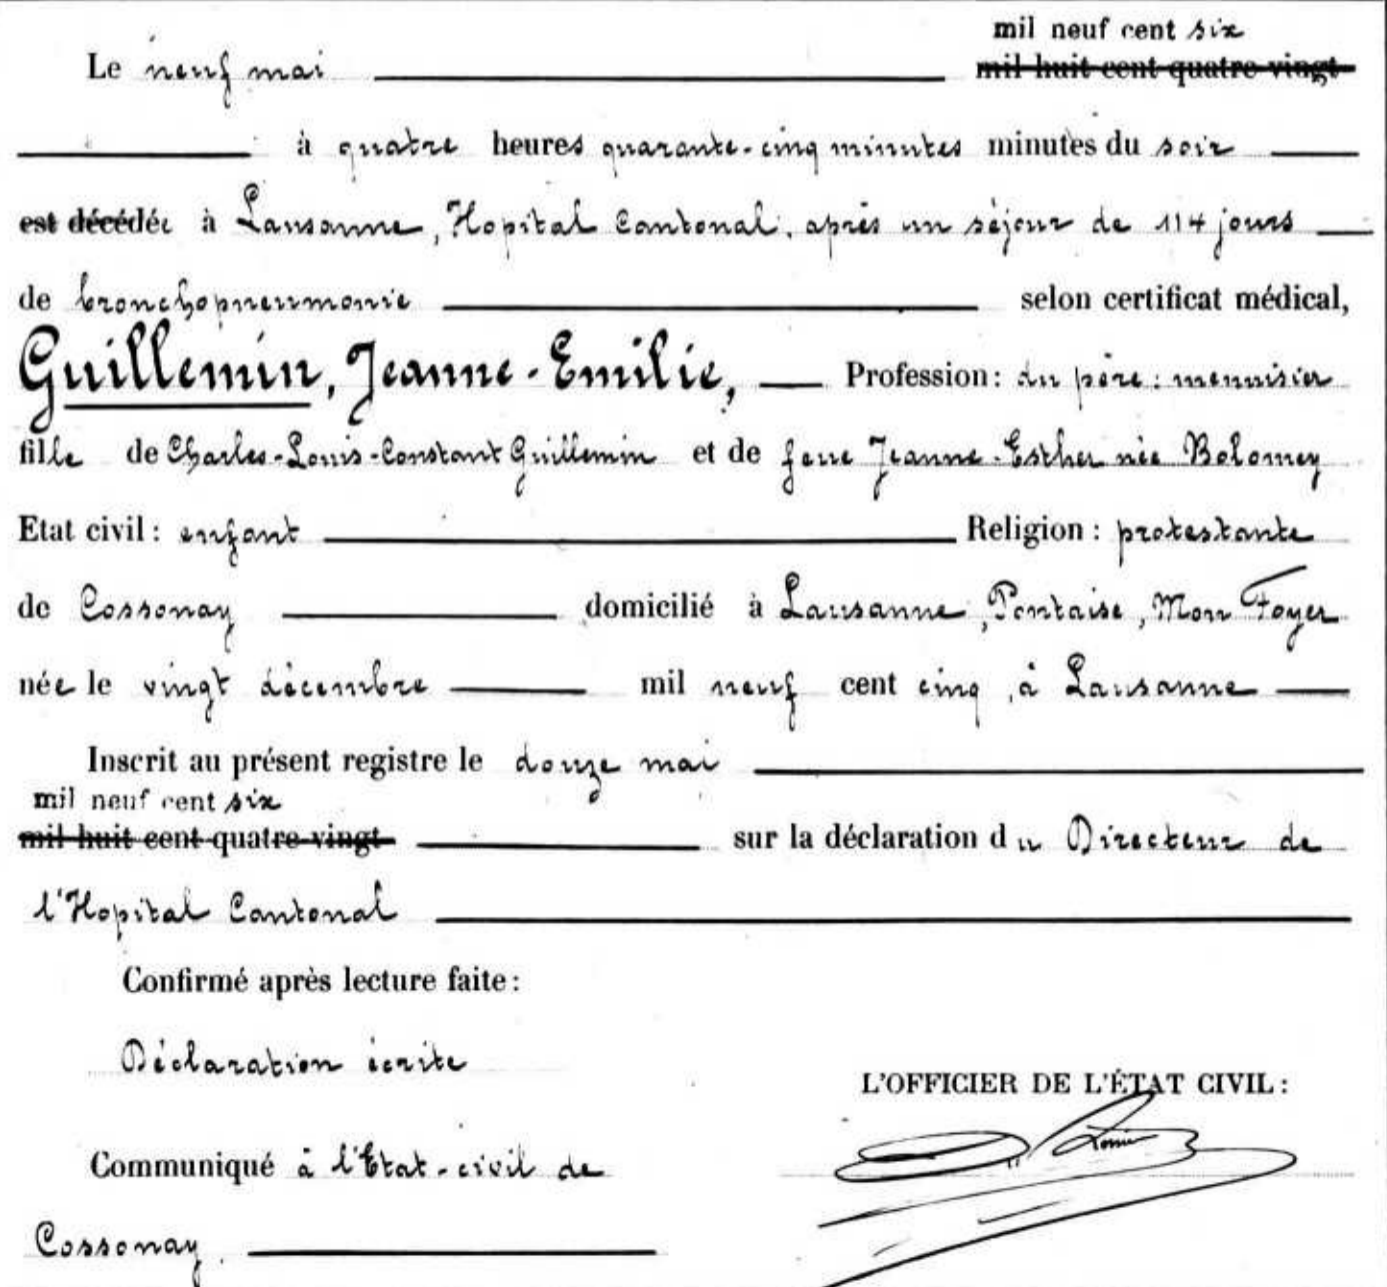 mil neuf cent six
Le neuf mai mil huit cent quatre-vingt
à quatre heures quarante-cinq minutes minutes du soir
est décédée à Lausanne, Hopital Cantonal, après un séjour de 114 jours
de bronchopneumonie selon certificat médical,
Guillemin, Jeanne-Emilie, Profession: du père: menuisier
fille de Charles-Louis-Constant Guillemin et de feue Jeanne-Esther née Bolomey
Etat civil: enfant Religion: protestante
de Cossonay domicilié à Lausanne, Pontaise, Mon Foyer
née le vingt décembre mil neuf cent cinq, à Lausanne
Inscrit au présent registre le douze mai
mil neuf cent six
mil huit cent quatre-vingt sur la déclaration du Directeur de
l'Hopital Cantonal
Confirmé après lecture faite:
Déclaration écrite
L'OFFICIER DE L'ÉTAT CIVIL:
Communiqué à l'Etat-civil de
Cossonay.